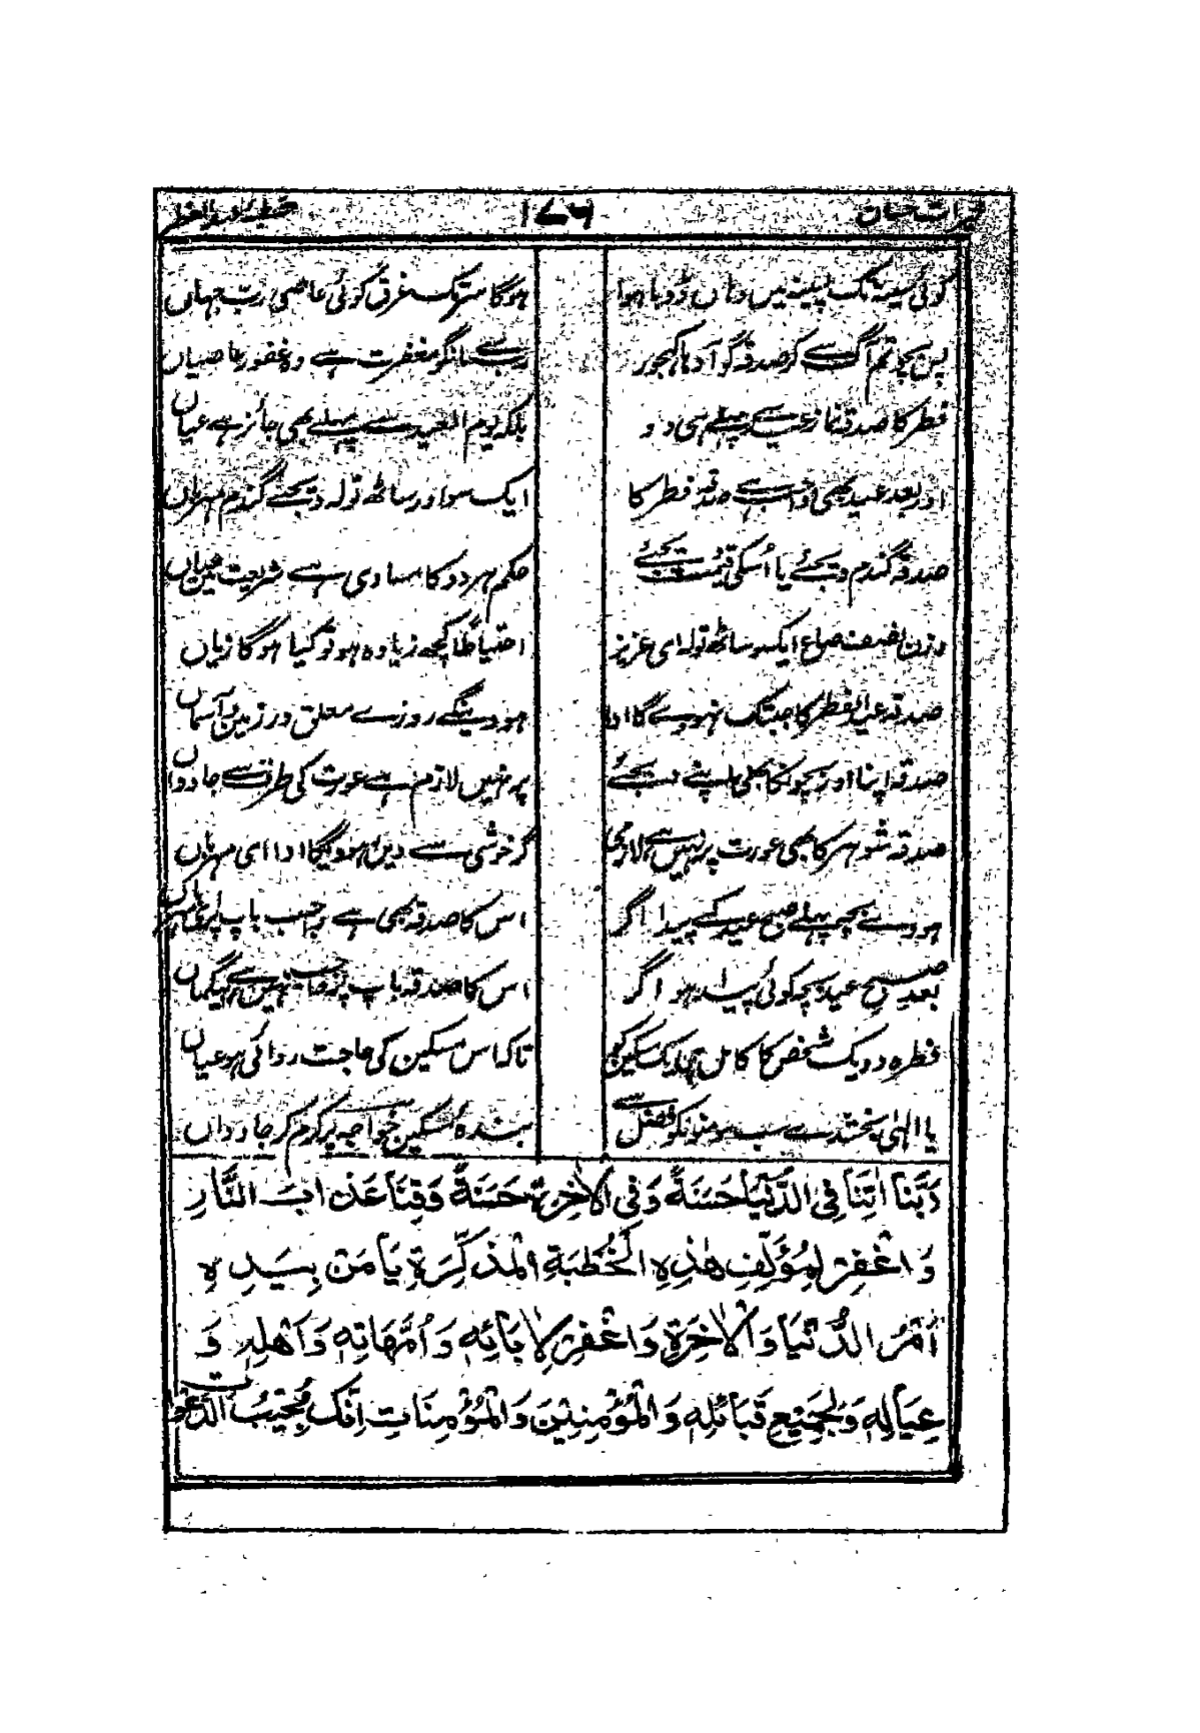 خیرات حسان ۱۷۶ خطبہ عید الفطر
کوئی سینہ تک پسینے میں وہاں ڈوبا ہوا ہوگا سر تک غرق کوئی عاصی رب جہاں
پس بچو تم آگ سے کر صدقہ گو آدہا کہجور رب سے مانگو مغفرت ہے وہ غفور عاصیاں
فطر کا صدقہ نماز عید سے پہلے ہی دو بلکہ یوم العید سے پہلے بھی جائز ہے عیاں
اور بعد عید بھی واجب ہے صدقہ فطر کا ایک سو اور ساٹھ تولہ دیجئے گندم مہرباں
صدقہ گندم دیجئے یا اُسکی قیمت دیجئے حکم ہر دو کا مساوی ہے شریعت میں میاں
وزن نصف صاع ایکسو ساٹھ تولہ ای عزیز احتیاطاً کچھ زیادہ ہو تو کیا ہوگا زیاں
صدقہ عید الفطر کا جبتک نہووے گا ادا ہوویںگے روزے معلق در زمین و آسماں
صدقہ اپنا اور بچونکا بھی اپنے دیجئے پر نہیں لازم ہے عورت کی طرف سے جاوداں
صدقہ شوہر کا بھی عورت پر نہیں ہے لازمی گر خوشی سے دیں ہوویگا ادا ای مہرباں
ہووے بچہ پہلے صبح عید کے پیدا اگر اس کا صدقہ بھی ہے واجب باپ پر
بعد صبح عید بچہ کوئی پیدا ہو اگر اس کا صدقہ باپ پر واجب نہیں ہے بیگماں
فطرہ دو یک شخص کا کامل تم ایک مسکین کو تاکہ اس مسکین کی حاجت روائی ہو عیاں
یا الٰہی بخشدے سب مومنونکو فضل سے بندہ مسکین خواجہ پر کرم کر جاوداں
رَبَّنَا اٰتِنَا فِی الدُّنْیَا حَسَنَةً وَفِی الْاٰخِرَةِ حَسَنَةً وَقِنَا عَذَابَ النَّارِ
وَاغْفِرْ لِمُؤَلِّفِ هٰذِهِ الْخُطْبَةِ الْمُذَكِّرَةِ يَا مَنْ بِيَدِهِ
اَمْرُ الدُّنْيَا وَالْاٰخِرَةِ وَاغْفِرْ لِاٰبَائِهٖ وَاُمَّهَاتِهٖ وَاَهْلِهٖ وَ
عِيَالِهٖ وَلِجَمِيْعِ قَبَائِلِهٖ وَالْمُؤْمِنِيْنَ وَالْمُؤْمِنَاتِ اِنَّكَ مُجِيْبُ الدَّعَوَاتِ